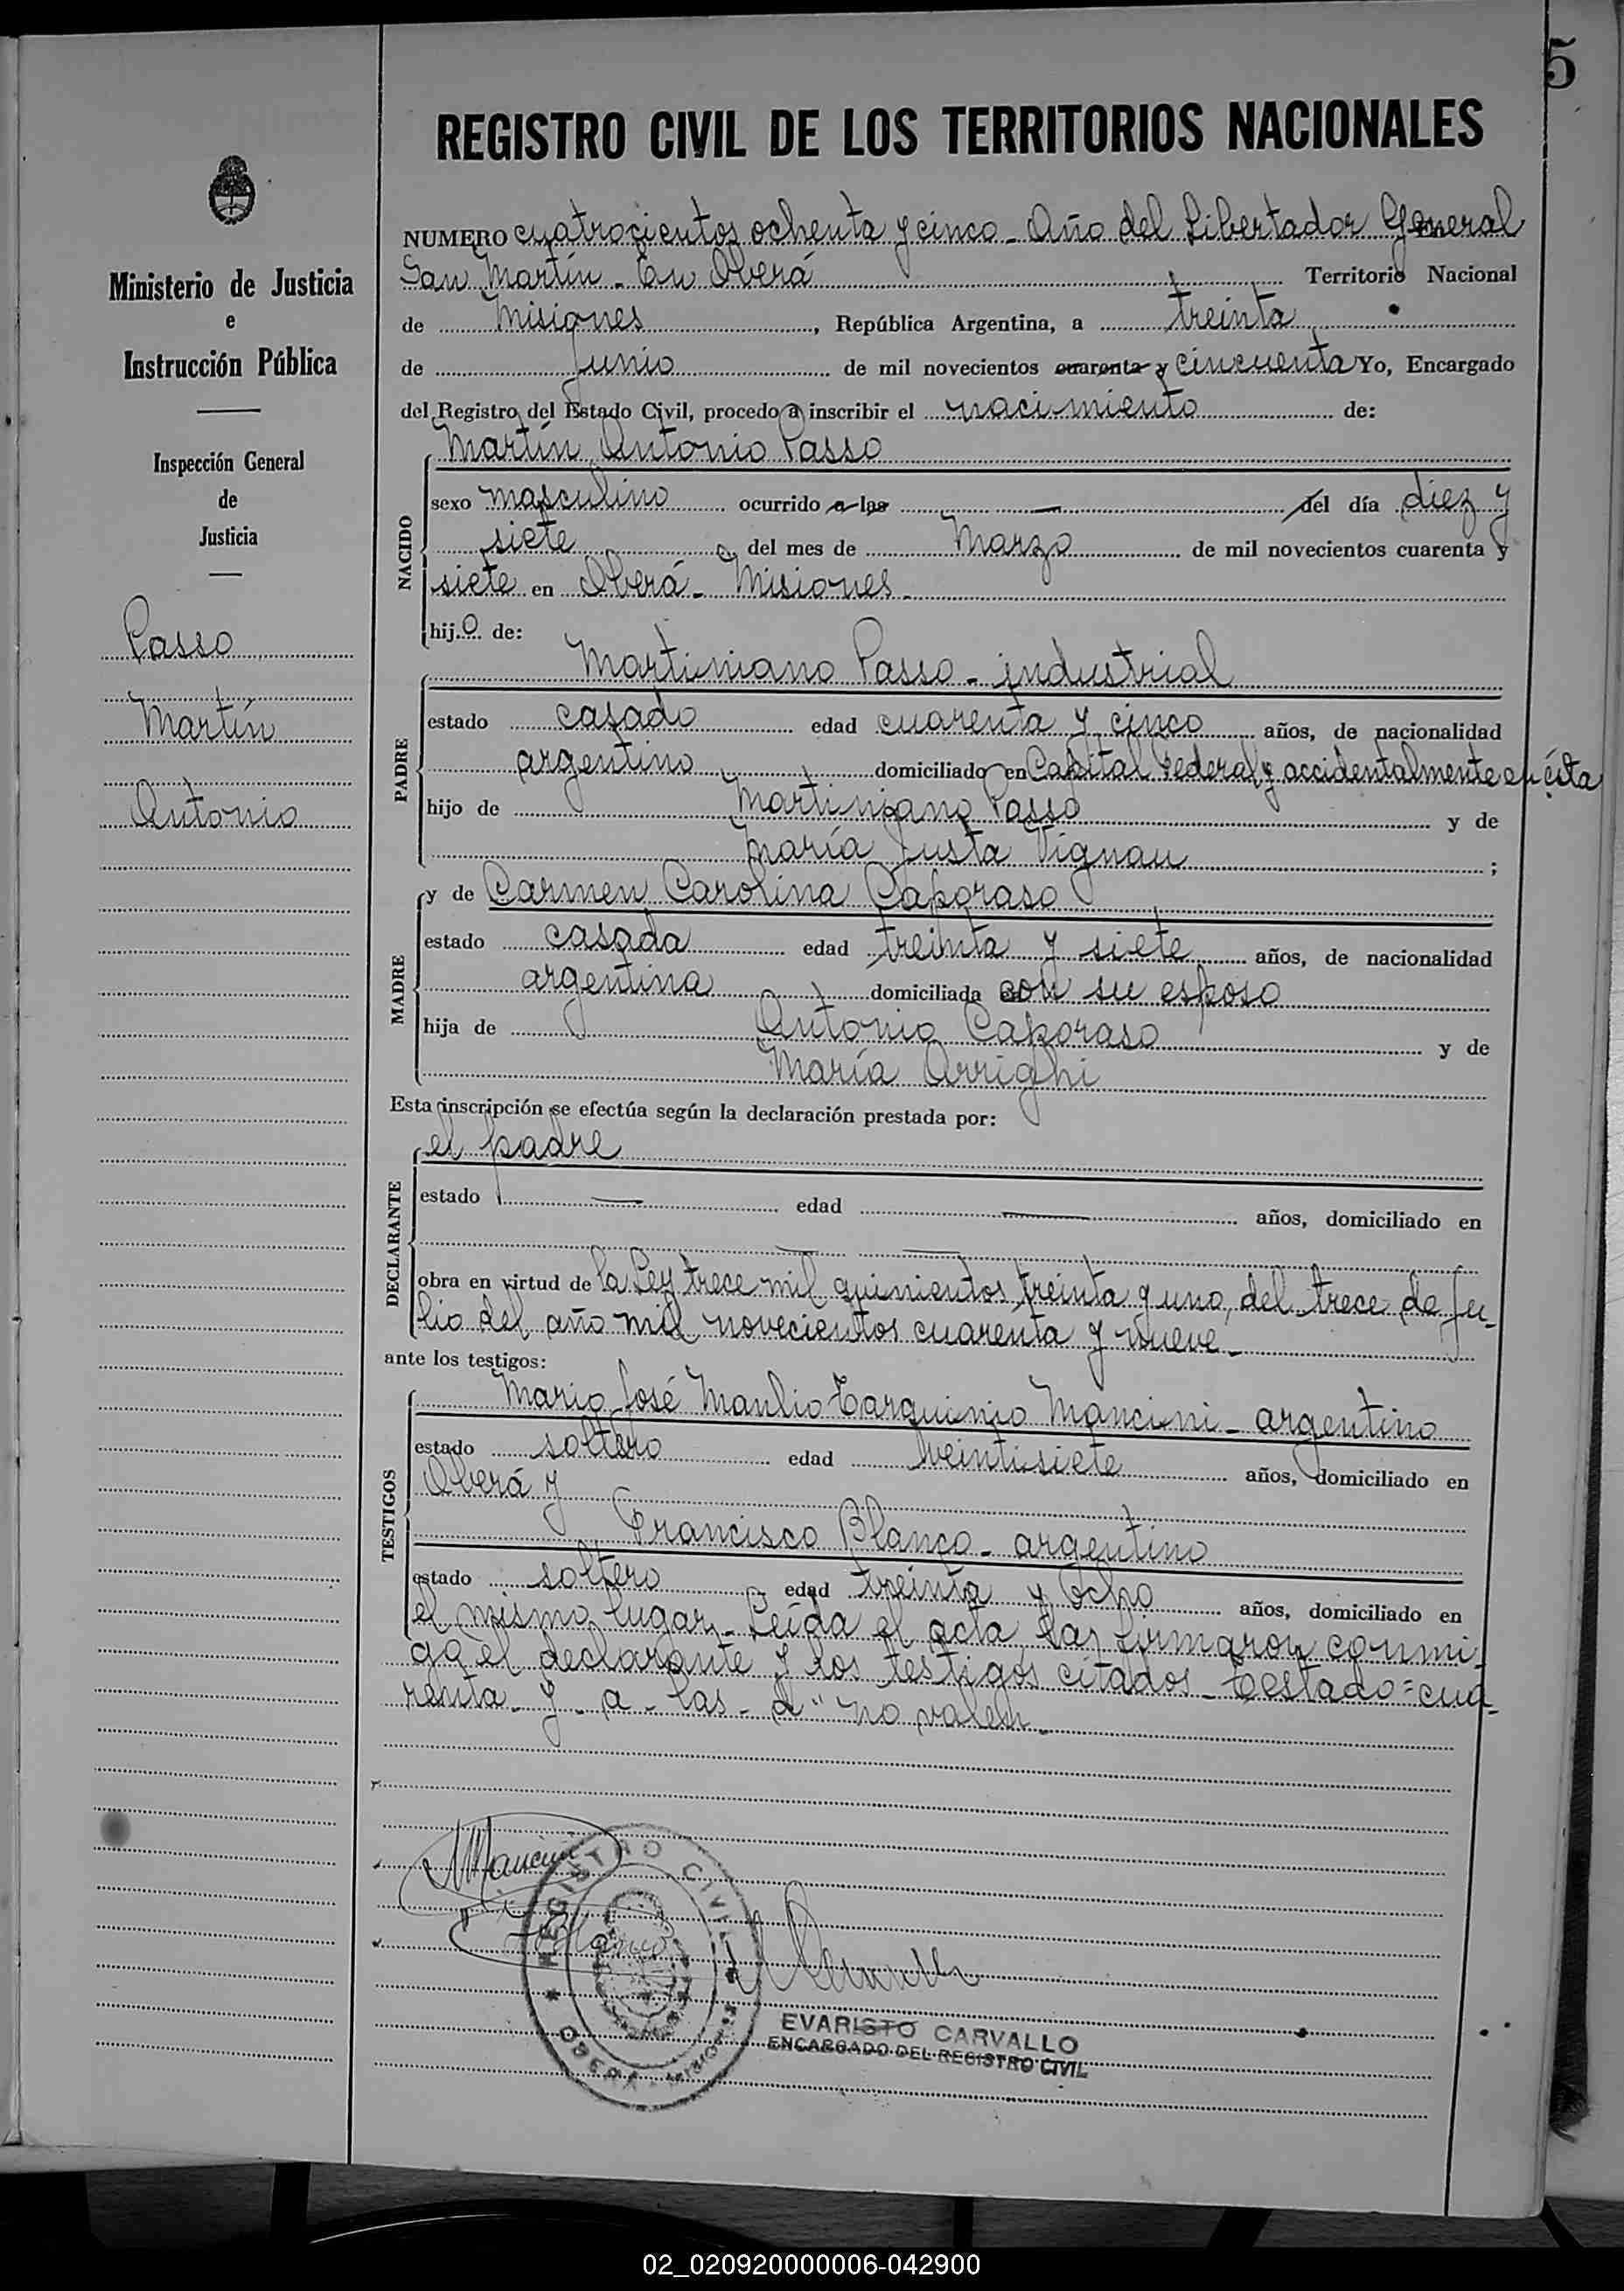 5
REGISTRO CIVIL DE LOS TERRITORIOS NACIONALES
Ministerio de Justicia
e
Instrucción Pública
Inspección General
de
Justicia
Passo
Martín
Antonio
NUMERO cuatrocientos ochenta y cinco - Año del Libertador General
San Martín - En Oberá Territorio Nacional
de Misiones, República Argentina, a treinta
de Junio de mil novecientos cuarenta y cincuenta Yo, Encargado
del Registro del Estado Civil, procedo a inscribir el nacimiento de:
Martín Antonio Passo
NACIDO
sexo masculino ocurrido a las — del día diez y
siete del mes de Marzo de mil novecientos cuarenta y
siete en Oberá - Misiones -
hijo de:
PADRE
Martiniano Passo - industrial
estado casado edad cuarenta y cinco años, de nacionalidad
argentino domiciliado en Capital Federal y accidentalmente en ésta
hijo de Martiniano Passo y de
María Justa Vignau ;
MADRE
y de Carmen Carolina Caporaso
estado casada edad treinta y siete años, de nacionalidad
argentina domiciliada con su esposo
hija de Antonio Caporaso y de
María Arrighi
Esta inscripción se efectúa según la declaración prestada por:
DECLARANTE
el padre
estado — edad — años, domiciliado en
— —
obra en virtud de la Ley trece mil quinientos treinta y uno, del trece de Ju-
lio del año mil novecientos cuarenta y nueve -
ante los testigos:
TESTIGOS
Mario José Manlio Tarquinio Mancini - argentino
estado soltero edad veintisiete años, domiciliado en
Oberá y
Francisco Blanco - argentino
estado soltero edad treinta y ocho años, domiciliado en
el mismo lugar - Leída el acta, las firmaron conmi-
go el declarante y los testigos citados - Testado = cua-
renta - y - a - las - d" no valen -
MMancini
FBlanco
REGISTRO CIVIL
OBERA - Misiones
EVARISTO CARVALLO
ENCARGADO DEL REGISTRO CIVIL
02_020920000006-042900